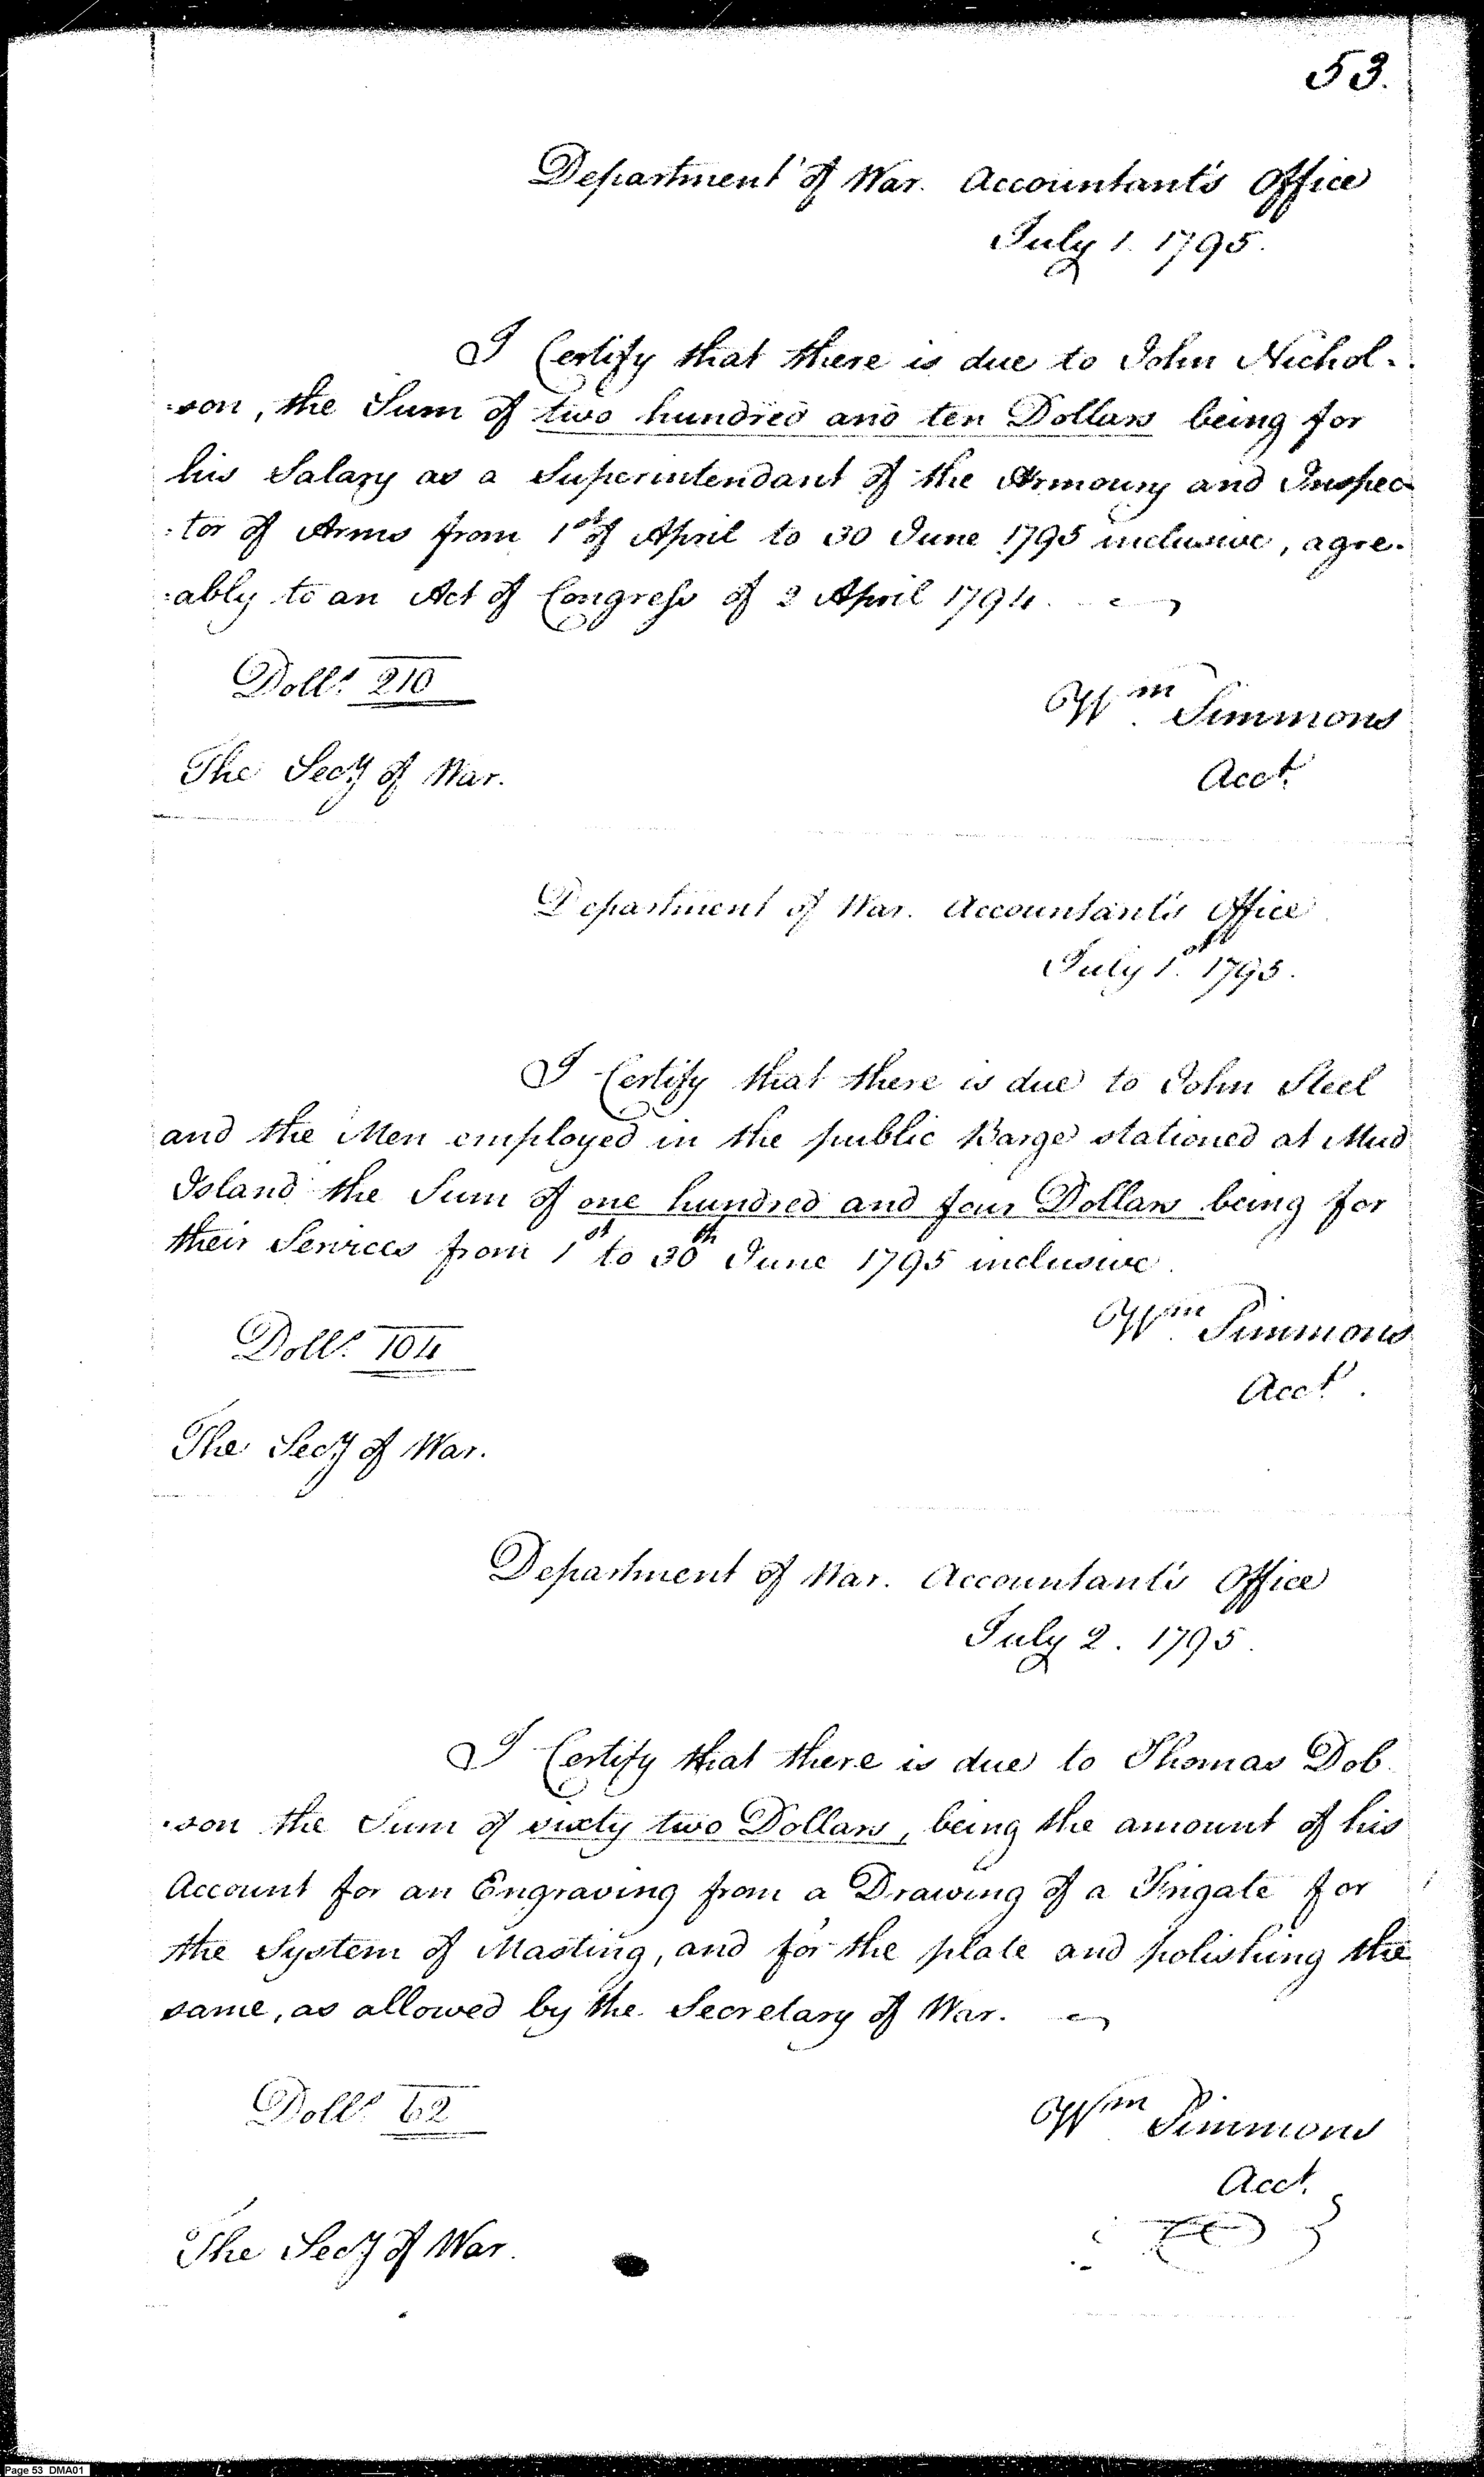 53.
Department of War. Accountant's Office
July 1. 1795.
I Certify that there is due to John Nichol-
-son, the Sum of two hundred and ten Dollars being for
his Salary as a Superintendant of the Armoury and Inspec-
-tor of Arms from 1st of April to 30 June 1795 inclusive, agre-
-ably to an Act of Congress of 2 April 1794.
Dolls. 210
Wm. Simmons
The Secy of War.
Acct.
Department of War. Accountant's Office
July 1st. 1795.
I Certify that there is due to John Steel
and the Men employed in the public Barge stationed at Mud
Island the Sum of one hundred and four Dollars being for
their Services from 1st to 30th June 1795 inclusive.
Wm. Simmons
Dolls. 104
Acct.
The Secy of War.
Department of War. Accountant's Office
July 2. 1795.
I Certify that there is due to Thomas Dob
-son the Sum of sixty two Dollars, being the amount of his
Account for an Engraving from a Drawing of a Frigate for
the System of Masting, and for the plate and polishing the
same, as allowed by the Secretary of War.
Dolls. 62
Wm Simmons
Acct.
The Secy of War.
Page 53 DMA01